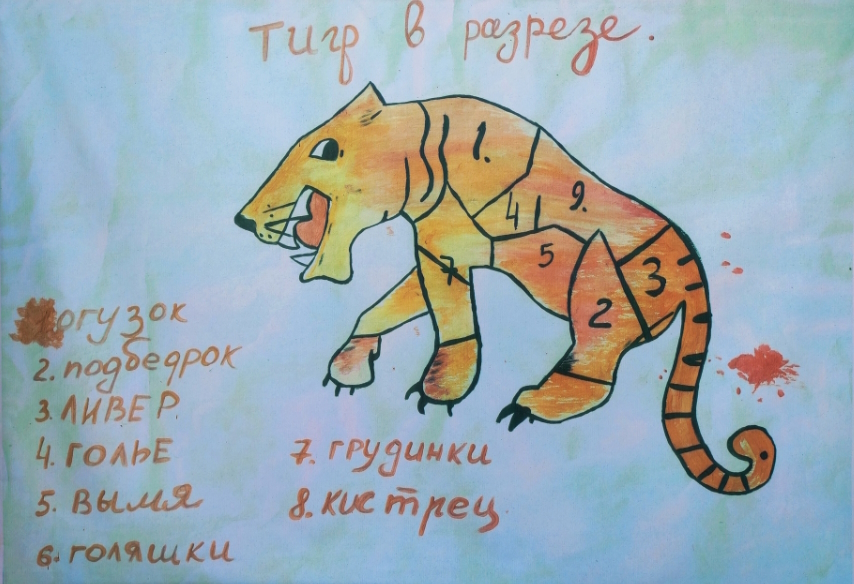 Тигр в разрезе.
1.
9.
4
5
7
3
2
огузок
2. подбедрок
3. ЛИВЕР
4. ГОЛЬЕ
5. ВЫМЯ
6. ГОЛЯШКИ
7. ГРУДИНКИ
8. КИСТРЕЦ